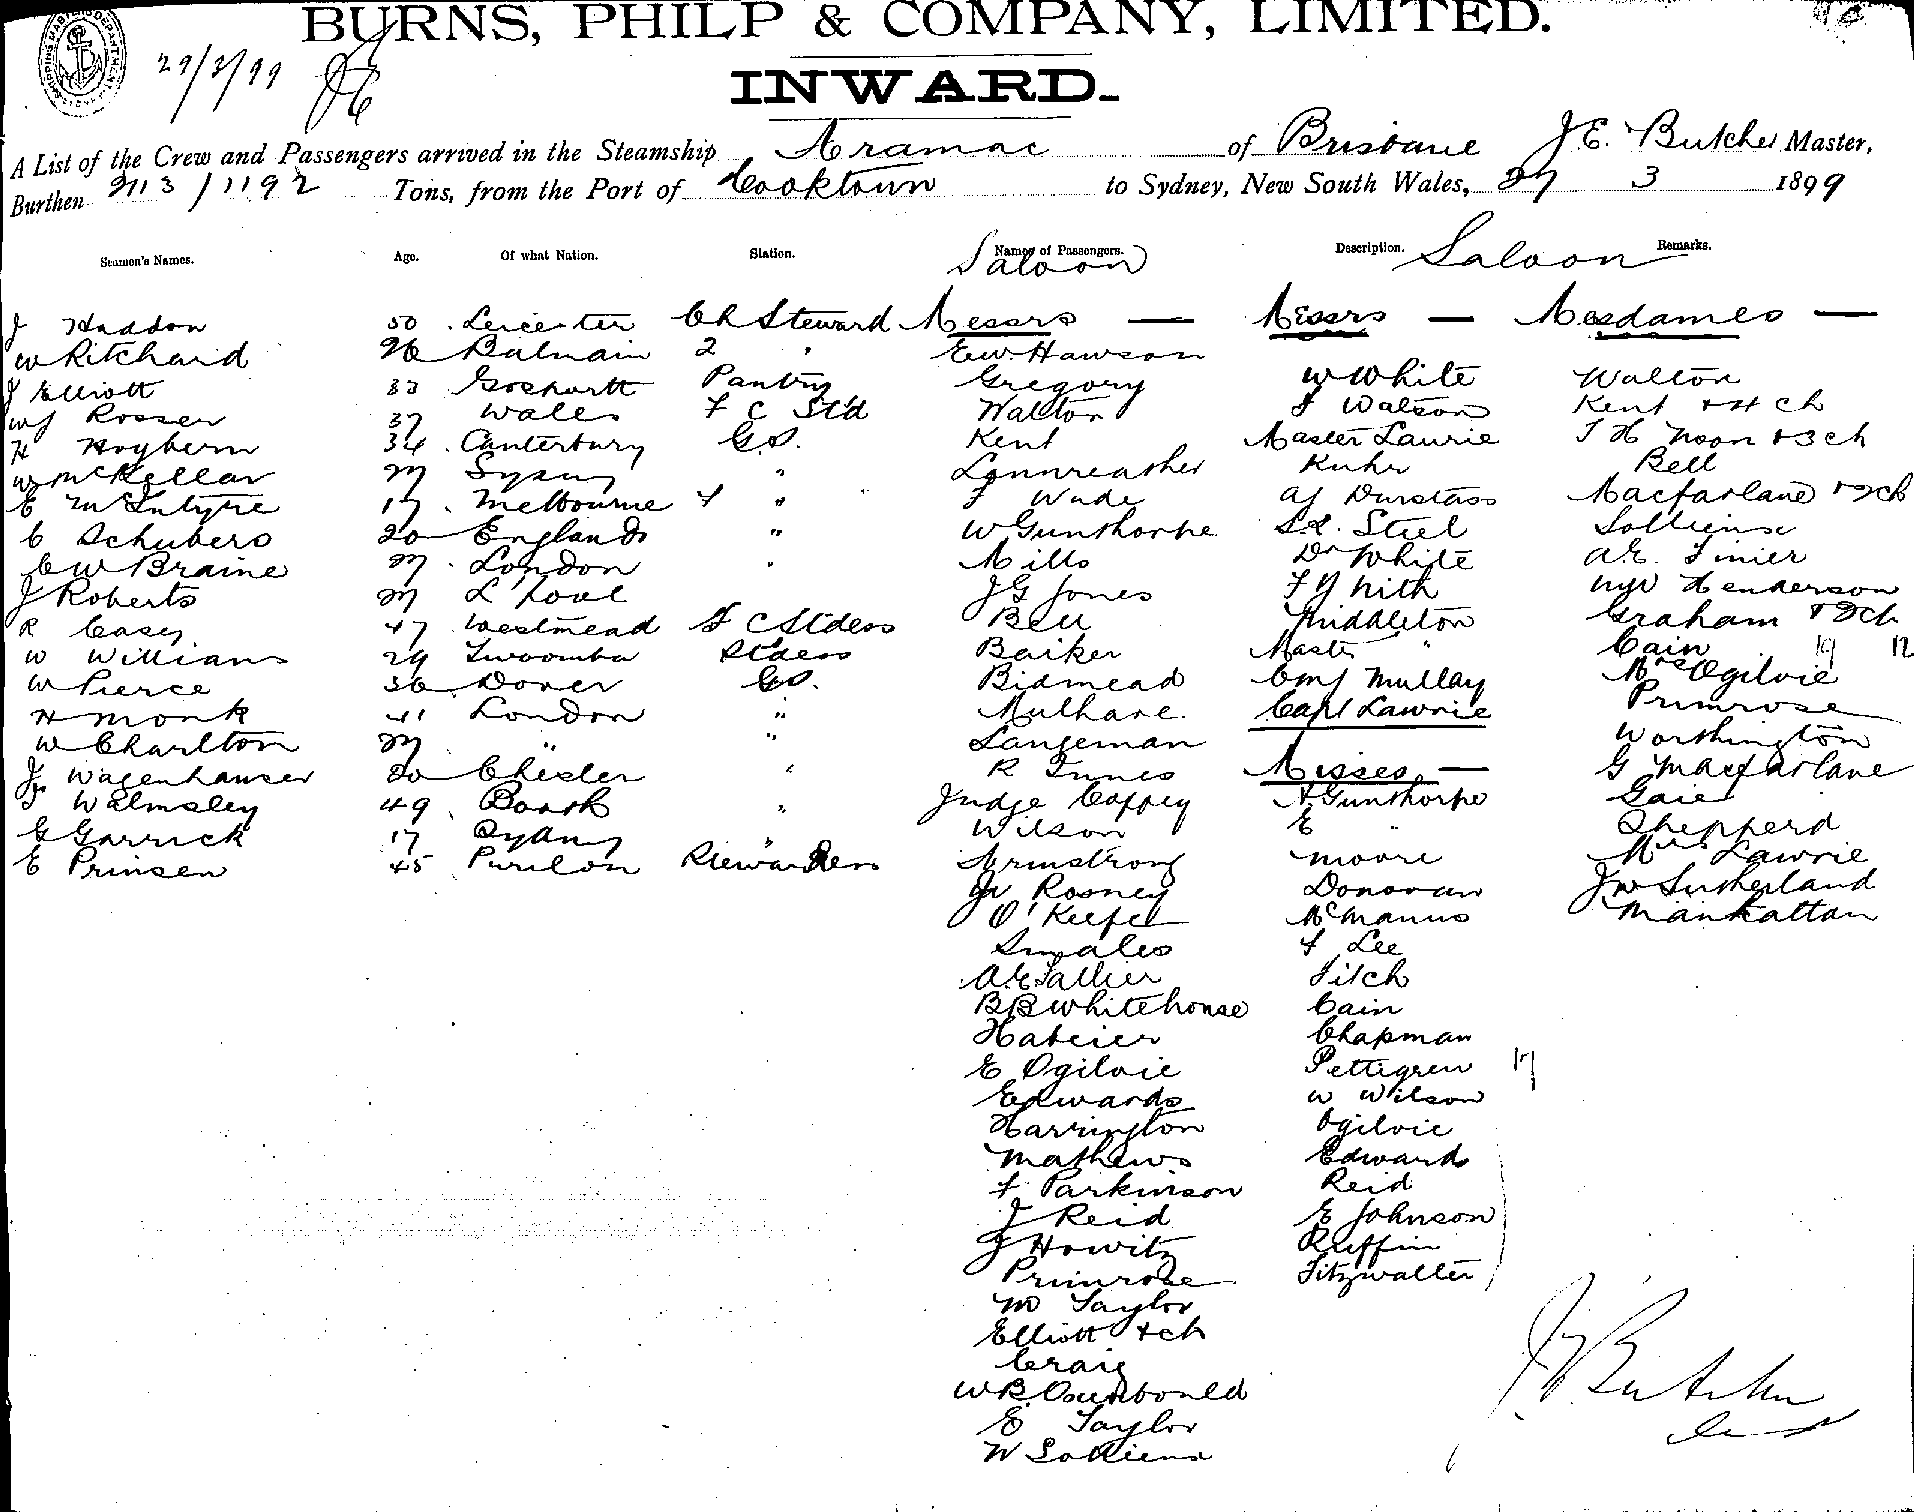 BURNS, PHILP & COMPANY, LIMITED.
29/3/99
INWARD.
A List of the Crew and Passengers arrived in the Steamship Aramac of Brisbane J E. Butcher Master,
Burthen 2113 / 1192 Tons, from the Port of Cooktown to Sydney, New South Wales, 27 3 1899
Seamen's Names. Age. Of what Nation. Station. Names of Passengers. Description. Remarks.
Saloon Saloon
J Haddon 50 Leicester Ch Steward Messrs — Messrs — Mesdames —
W Ritchard 26 Balmain 2 " E.W. Hawson
J Elliott 33 Pantry Gregory W White Walton
WJ Rosser 37 Wales F C Std Walton J Watson Kent + 4 ch
H 34 Canterbury G.S. Kent Master Laurie J H Noon + 3 ch
W McKellar 27 Sydny " Kuhr Bell
E McIntyre 17 Melbourne " F Wade AJ Macfarlane + 2 ch
C Schubers 20 England " W Gunthorpe Steel
C W Braine 27 London " Mills Dr White A.E.
J Roberts 27 L'pool J G Jones F J Henderson
R Casey 47 Westmead F C Stdess Bell Middleton Graham + 2 ch
W Williams 29 Stdess Barker Master " Cain 19 12
W Pierce 36 Dover G.S. Bidmead Mullay Mrs Ogilvie
H Monk 41 London " Mulhare Capt Lawrie Primrose
W Charlton 27 " " Langeman Worthington
Wagenhauser 20 Chester " R Innes Misses — G Macfarlane
Walmsley 49 " Judge A Gunthorpe
G Garrick 17 Sydny " Wilson E " Shepperd
E Prinsen 45 Armstrong Moore Mrs Lawrie
Rosney Donovan JW Sutherland
O'Keefe McManus Manhattan
Smales F Lee
Fitch
B B Whitehouse Cain
Chapman
E Ogilvie Pettigrew 17
Edwards W Wilson
Harrington Ogilvie
Mathews Edwards
F Parkinson Reid
J Reid E Johnson
J Howitz Ruffin
Primrose Fitzwalter
M Taylor
Elliott + ch
Craig
W B
E Taylor
W
J E Butcher